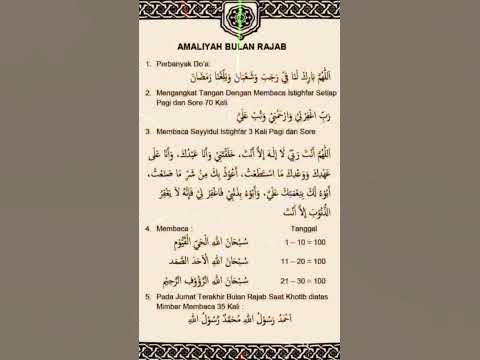 AMALIYAH BULAN RAJAB
1. Perbanyak Do'a:
اَللّٰهُمَّ بَارِكْ لَنَا فِيْ رَجَبَ وَشَعْبَانَ وَبَلِّغْنَا رَمَضَانَ
2. Mengangkat Tangan Dengan Membaca Istighfar Setiap
Pagi dan Sore 70 Kali
رَبِّ اغْفِرْلِيْ وَارْحَمْنِيْ وَتُبْ عَلَيَّ
3. Membaca Sayyidul Istighfar 3 Kali Pagi dan Sore
اَللّٰهُمَّ أَنْتَ رَبِّيْ لَا إِلٰهَ إِلَّا أَنْتَ، خَلَقْتَنِيْ وَأَنَا عَبْدُكَ، وَأَنَا عَلَى
عَهْدِكَ وَوَعْدِكَ مَا اسْتَطَعْتُ، أَعُوْذُ بِكَ مِنْ شَرِّ مَا صَنَعْتُ،
أَبُوْءُ لَكَ بِنِعْمَتِكَ عَلَيَّ، وَأَبُوْءُ بِذَنْبِيْ فَاغْفِرْ لِيْ فَإِنَّهُ لَا يَغْفِرُ
الذُّنُوْبَ إِلَّا أَنْتَ
4. Membaca : Tanggal
سُبْحَانَ اللهِ الْحَيِّ الْقَيُّوْمِ 1 – 10 = 100
سُبْحَانَ اللهِ الْأَحَدِ الصَّمَدِ 11 – 20 = 100
سُبْحَانَ اللهِ الرَّؤُوْفِ الرَّحِيْمِ 21 – 30 = 100
5. Pada Jumat Terakhir Bulan Rajab Saat Khotib diatas
Mimbar Membaca 35 Kali :
أَحْمَدُ رَسُوْلُ اللهِ مُحَمَّدٌ رَسُوْلُ اللهِ